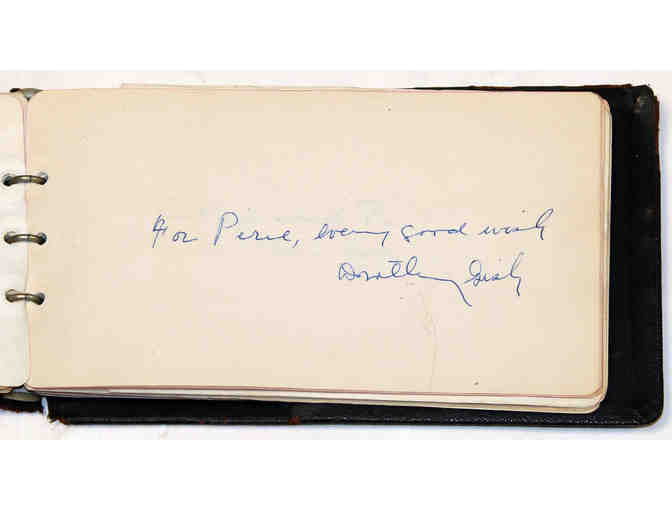 For Pirie, every good wish
Dorothy Gish